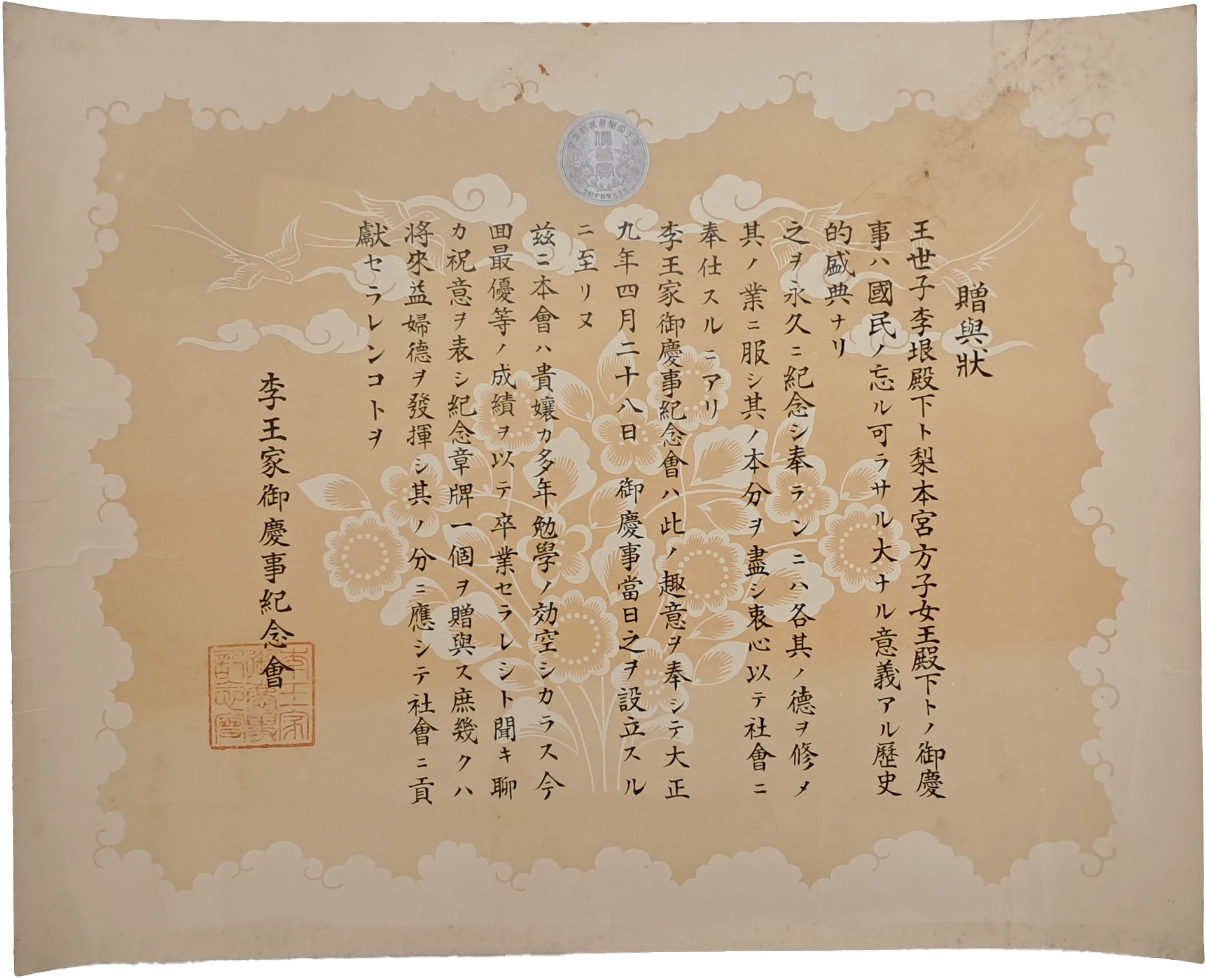 贈與狀
王世子李垠殿下ト梨本宮方子女王殿下トノ御慶
事ハ國民ノ忘ル可ラサル大ナル意義アル歷史
的盛典ナリ
之ヲ永久ニ紀念シ奉ランニハ各其ノ德ヲ修メ
其ノ業ニ服シ其ノ本分ヲ盡シ衷心以テ社會ニ
奉仕スルニアリ
李王家御慶事紀念會ハ此ノ趣意ヲ奉シテ大正
九年四月二十八日御慶事當日之ヲ設立スル
ニ至リヌ
茲ニ本會ハ貴孃カ多年勉學ノ効空シカラス今
回最優等ノ成績ヲ以テ卒業セラレシト聞キ聊
カ祝意ヲ表シ紀念章牌一個ヲ贈與ス庶幾クハ
將來益婦德ヲ發揮シ其ノ分ニ應シテ社會ニ貢
獻セラレンコトヲ
李王家御慶事紀念會